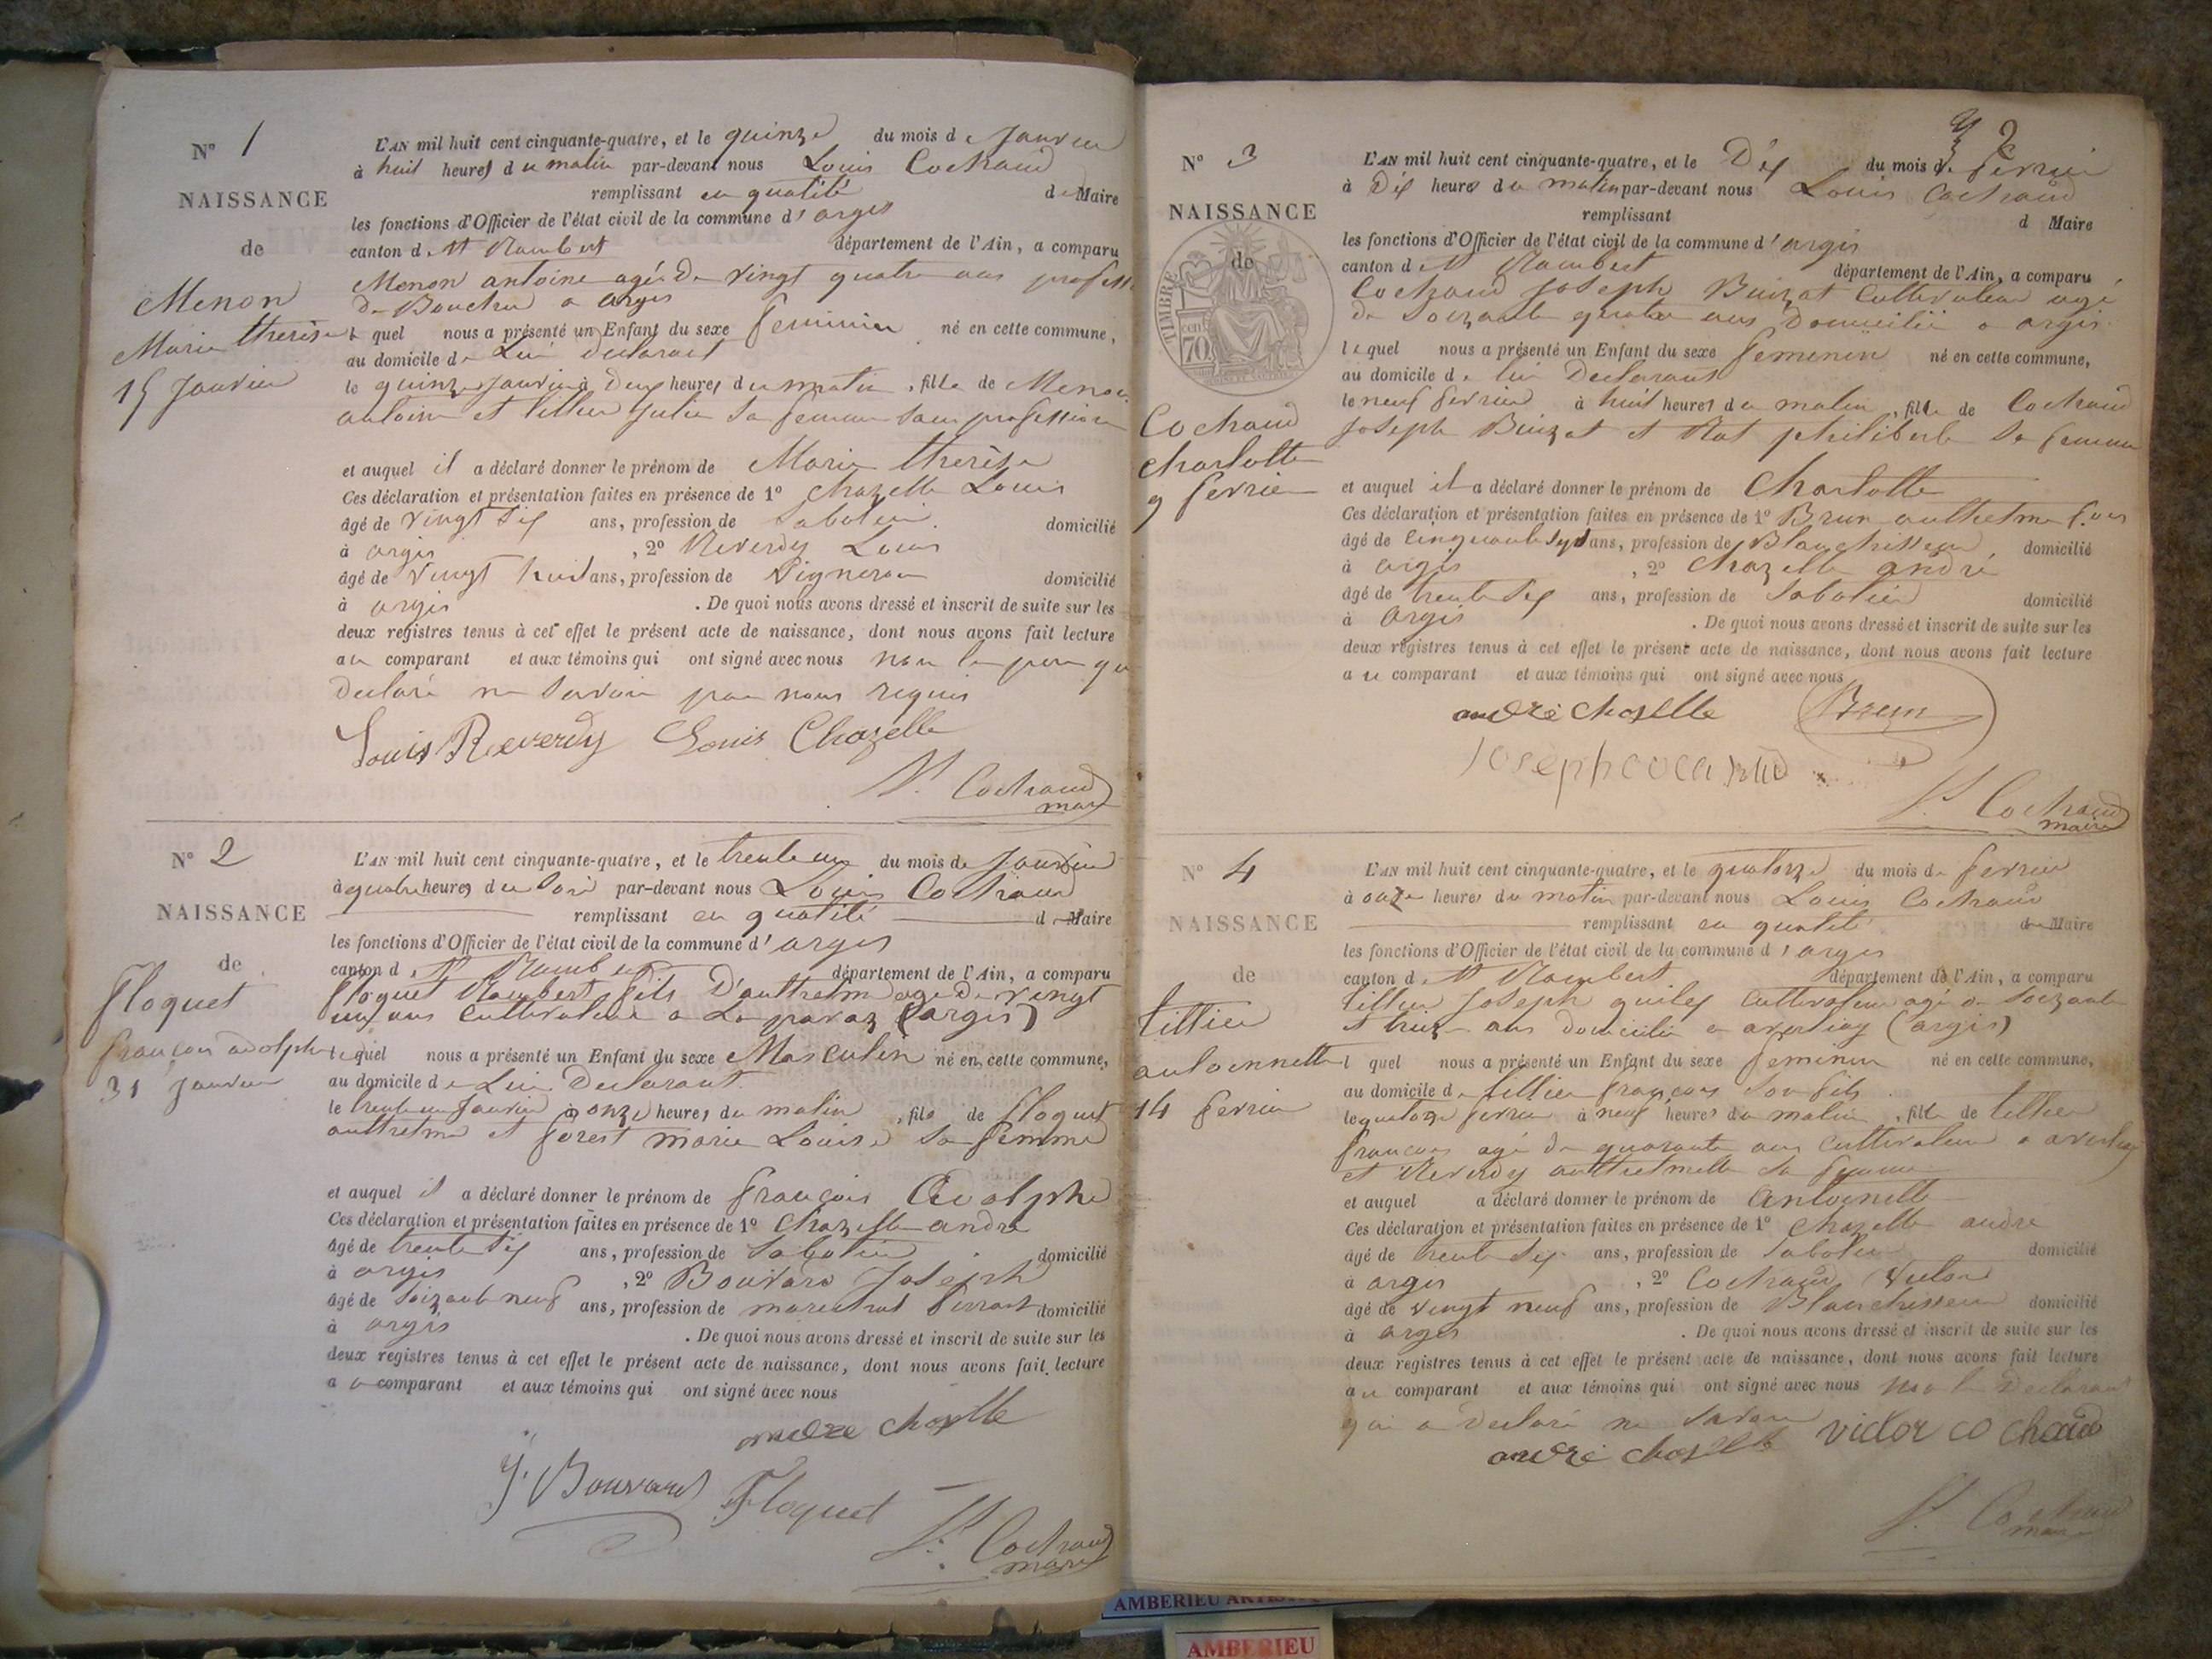 N° 1
NAISSANCE
de
Menon
Marie therèse
15 Janvier
L'AN mil huit cent cinquante-quatre, et le quinze du mois de Janvier
à huit heures du matin par-devant nous Louis Cochaud
remplissant en qualité de Maire
les fonctions d'Officier de l'état civil de la commune d'argis
canton de St Rambert département de l'Ain, a comparu
Menon antoine agé de vingt quatre ans
de Boucher a argis
le quel nous a présenté un Enfant du sexe feminin né en cette commune,
au domicile de Lui declarant
le quinze Janvier à deux heures du matin, fille de Menon
antoine et tillier Julie sa femme sans profession
et auquel il a déclaré donner le prénom de Marie therèse
Ces déclaration et présentation faites en présence de 1° Chazelle Louis
âgé de vingt six ans, profession de Sabotier domicilié
à argis, 2° Reverdy Louis
âgé de vingt huit ans, profession de Vigneron domicilié
à argis. De quoi nous avons dressé et inscrit de suite sur les
deux registres tenus à cet effet le présent acte de naissance, dont nous avons fait lecture
au comparant et aux témoins qui ont signé avec nous non le père qui
declaré ne savoir par nous requis
Louis Reverdy Louis Chazelle
Lˢ Cochaud
maire
N° 2
NAISSANCE
de
floquet
françois adolphe
31 Janvier
L'AN mil huit cent cinquante-quatre, et le trente un du mois de Janvier
à quatre heures du soir par-devant nous Louis Cochaud
remplissant en qualité de Maire
les fonctions d'Officier de l'état civil de la commune d'argis
canton de St Rambert département de l'Ain, a comparu
floquet Rambert fils D'anthelme agé de vingt
un ans cultivateur a (argis)
le quel nous a présenté un Enfant du sexe Masculin né en cette commune,
au domicile de Lui Declarant
le trente un Janvier à onze heures du matin, fils de floquet
anthelme et forest marie Louise sa femme
et auquel il a déclaré donner le prénom de françois Adolphe
Ces déclaration et présentation faites en présence de 1° Chazelle andré
âgé de trente six ans, profession de Sabotier domicilié
à argis, 2° Bouvard Joseph
âgé de soixante neuf ans, profession de marechal ferrant domicilié
à argis. De quoi nous avons dressé et inscrit de suite sur les
deux registres tenus à cet effet le présent acte de naissance, dont nous avons fait lecture
au comparant et aux témoins qui ont signé avec nous
andré chazelle
J. Bouvard Floquet
Lˢ Cochaud
maire
2
N° 3
NAISSANCE
de
TIMBRE
cent
70
Cochaud
Charlotte
9 fevrier
L'AN mil huit cent cinquante-quatre, et le Dix du mois de fevrier
à Dix heures du matin par-devant nous Louis Cochaud
remplissant d Maire
les fonctions d'Officier de l'état civil de la commune d'argis
canton de St Rambert département de l'Ain, a comparu
Cochaud Joseph Buizat Cultivateur agé
de soixante quatre ans Domicilié a argis
le quel nous a présenté un Enfant du sexe femenin né en cette commune,
au domicile de lui Declarant
le neuf fevrier à huit heures du matin, fille de Cochaud
Joseph Buizat et Rat philiberte sa femme
et auquel il a déclaré donner le prénom de Charlotte
Ces déclaration et présentation faites en présence de 1° Brun anthelme
âgé de cinquante sept ans, profession de Blanchisseur domicilié
à argis, 2° Chazelle andré
âgé de trente six ans, profession de Sabotier domicilié
à argis. De quoi nous avons dressé et inscrit de suite sur les
deux registres tenus à cet effet le présent acte de naissance, dont nous avons fait lecture
au comparant et aux témoins qui ont signé avec nous
andré chazelle Brun
Joseph cocahud
Lˢ Cochaud
maire
N° 4
NAISSANCE
de
tillier
antoinette
14 fevrier
L'AN mil huit cent cinquante-quatre, et le quatorze du mois de fevrier
à onze heures du matin par-devant nous Louis Cochaud
remplissant en qualité de Maire
les fonctions d'Officier de l'état civil de la commune d'argis
canton de St Rambert département de l'Ain, a comparu
tillier Joseph cultivateur agé de soixante
et treize ans domicilié a averliaz (argis)
l quel nous a présenté un Enfant du sexe feminin né en cette commune,
au domicile de tillier françois son fils
le quatorze fevrier à neuf heures du matin, fille de tillier
françois agé de quarante ans cultivateur a averliaz
et Reverdy anthelmette sa femme
et auquel a déclaré donner le prénom de Antoinette
Ces déclaration et présentation faites en présence de 1° Chazelle andré
âgé de trente six ans, profession de Sabotier domicilié
à argis, 2° Cochaud Victor
âgé de vingt neuf ans, profession de Blanchisseur domicilié
à argis. De quoi nous avons dressé et inscrit de suite sur les
deux registres tenus à cet effet le présent acte de naissance, dont nous avons fait lecture
au comparant et aux témoins qui ont signé avec nous non le declarant
qui a declaré ne savoir victor cochaud
andré chazelle
Lˢ Cochaud
maire
AMBERIEU
AMBERIEU